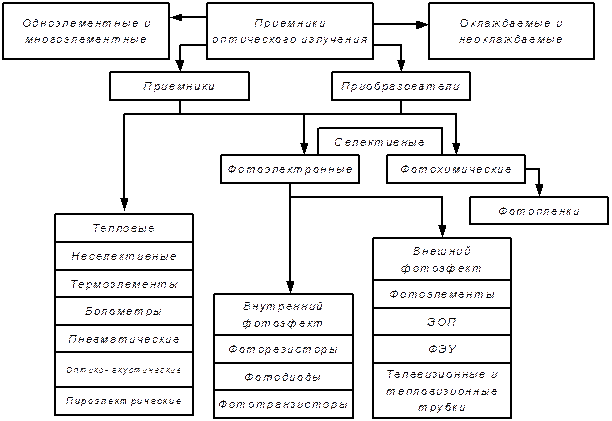 Одноэлементные и
многоэлементные
Приемники
оптического излучения
Охлаждаемые и
неохлаждаемые
Приемники
Преобразователи
Селективные
Фотоэлектронные
Фотохимические
Фотопленки
Тепловые
Неселективные
Термоэлементы
Болометры
Пневматические
Оптико-акустические
Пироэлектрические
Внутренний
фотоэфект
Фоторезисторы
Фотодиоды
Фототранзисторы
Внешний
фотоэфект
Фотоэлементы
ЭОП
ФЭУ
Телевизионные и
тепловизионные
трубки